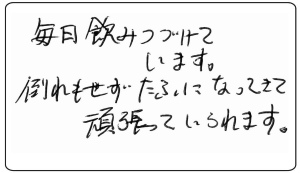 毎日飲みつづけて
います。
倒れもせず たふいになってきて
頑張っていられます。